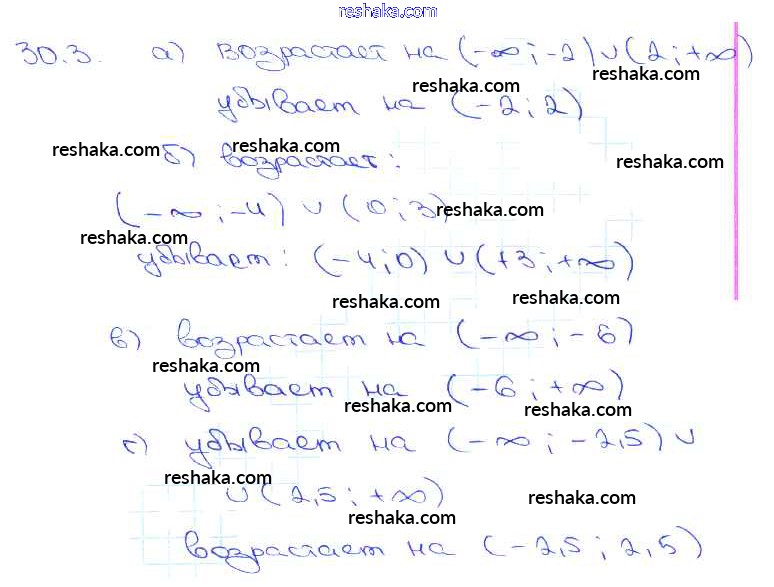 reshaka.com
30.3. а) возрастает на (-∞; -2) ∪ (2; +∞)
reshaka.com
reshaka.com
убывает на (-2; 2)
reshaka.com б) возрастает:
reshaka.com
reshaka.com
(-∞; -4) ∪ (0; 3)
reshaka.com
reshaka.com
убывает: (-4; 0) ∪ (+3; +∞)
reshaka.com
reshaka.com
в) возрастает на (-∞; -6)
reshaka.com
убывает на (-6; +∞)
reshaka.com
reshaka.com
г) убывает на (-∞; -2,5) ∪
reshaka.com
∪ (2,5; +∞)
reshaka.com
reshaka.com
возрастает на (-2,5; 2,5)